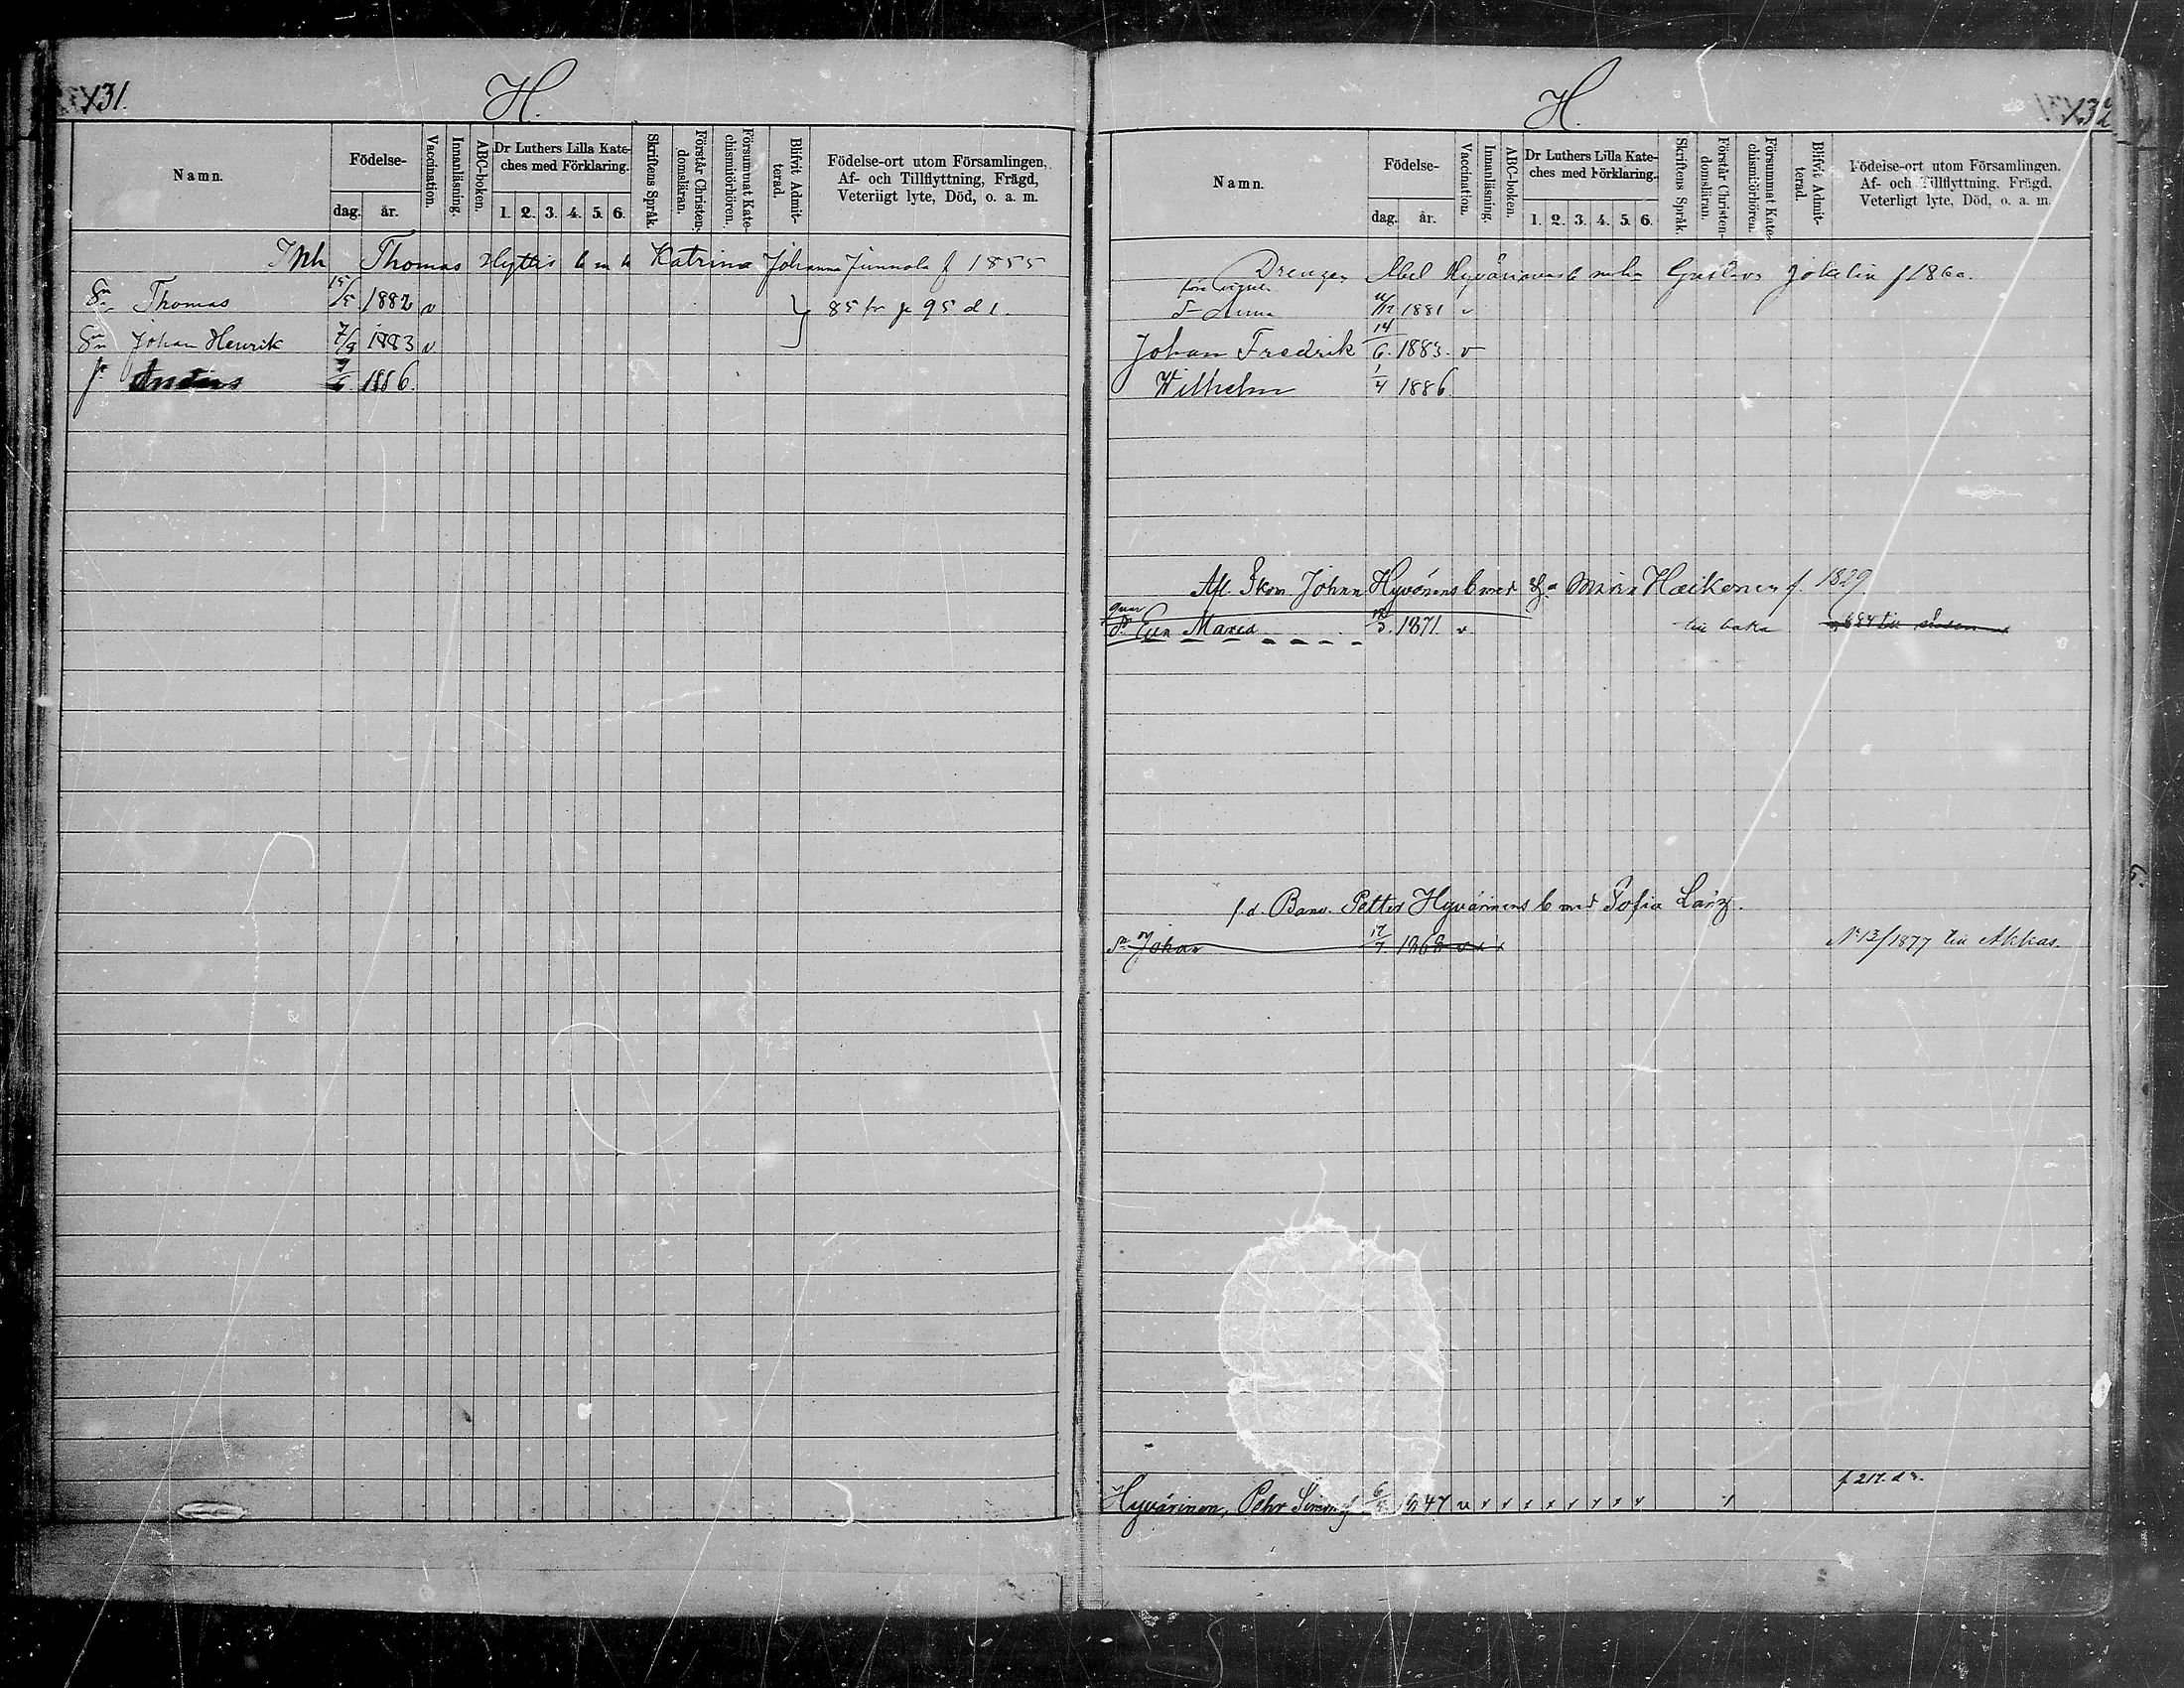 131.
H.
Namn.
Födelse-
dag.
år.
Vaccination.
Innanläsning.
ABC-boken.
Dr Luthers Lilla Kate-
ches med Förklaring.
1. 2. 3. 4. 5. 6.
Skriftens Språk.
Förstår Christen-
domsläran.
Försummat Kate-
chismiförhören.
Blifvit Admit-
terad.
Födelse-ort utom Församlingen,
Af- och Tillflyttning, Frägd,
Veterligt lyte, Död, o. a. m.
Thomas Hyttis b m h Katrina Johanna Junnola f 1855
Sn Thomas 15/5 1882 v 85 fr p 95 d 1.
Sn Johan Henrik 7/9 1883 v
Anders 9/6 1886.
132
H.
Namn.
Födelse-
dag.
år.
Vaccination.
Innanläsning.
ABC-boken.
Dr Luthers Lilla Kate-
ches med Förklaring.
1. 2. 3. 4. 5. 6.
Skriftens Språk.
Förstår Christen-
domsläran.
Försummat Kate-
chismiförhören.
Blifvit Admit-
terad.
Födelse-ort utom Församlingen.
Af- och Tillflyttning. Frägd.
Veterligt lyte, Död, o. a. m.
Drengen Abel Hyvärinens b m h Gustava Jokelin f 1860.
Anna 1881 v
Johan Fredrik 14/6. 1883. v
Wilhelm 1/4 1886.
Afl. Skom Johan Hyvönens b med Maria Heikonen f. 1829
Eva Maria 1871. v till baka
f. d. Banv. Petter Hyvärinens b med Sofia Lärz.
Sn Johan 17/7. 1868 v x x No 13/1877 till Akkas.
p 217. d 2.
Hyvärinen, Pehr Simonsf 6/5 1847 v